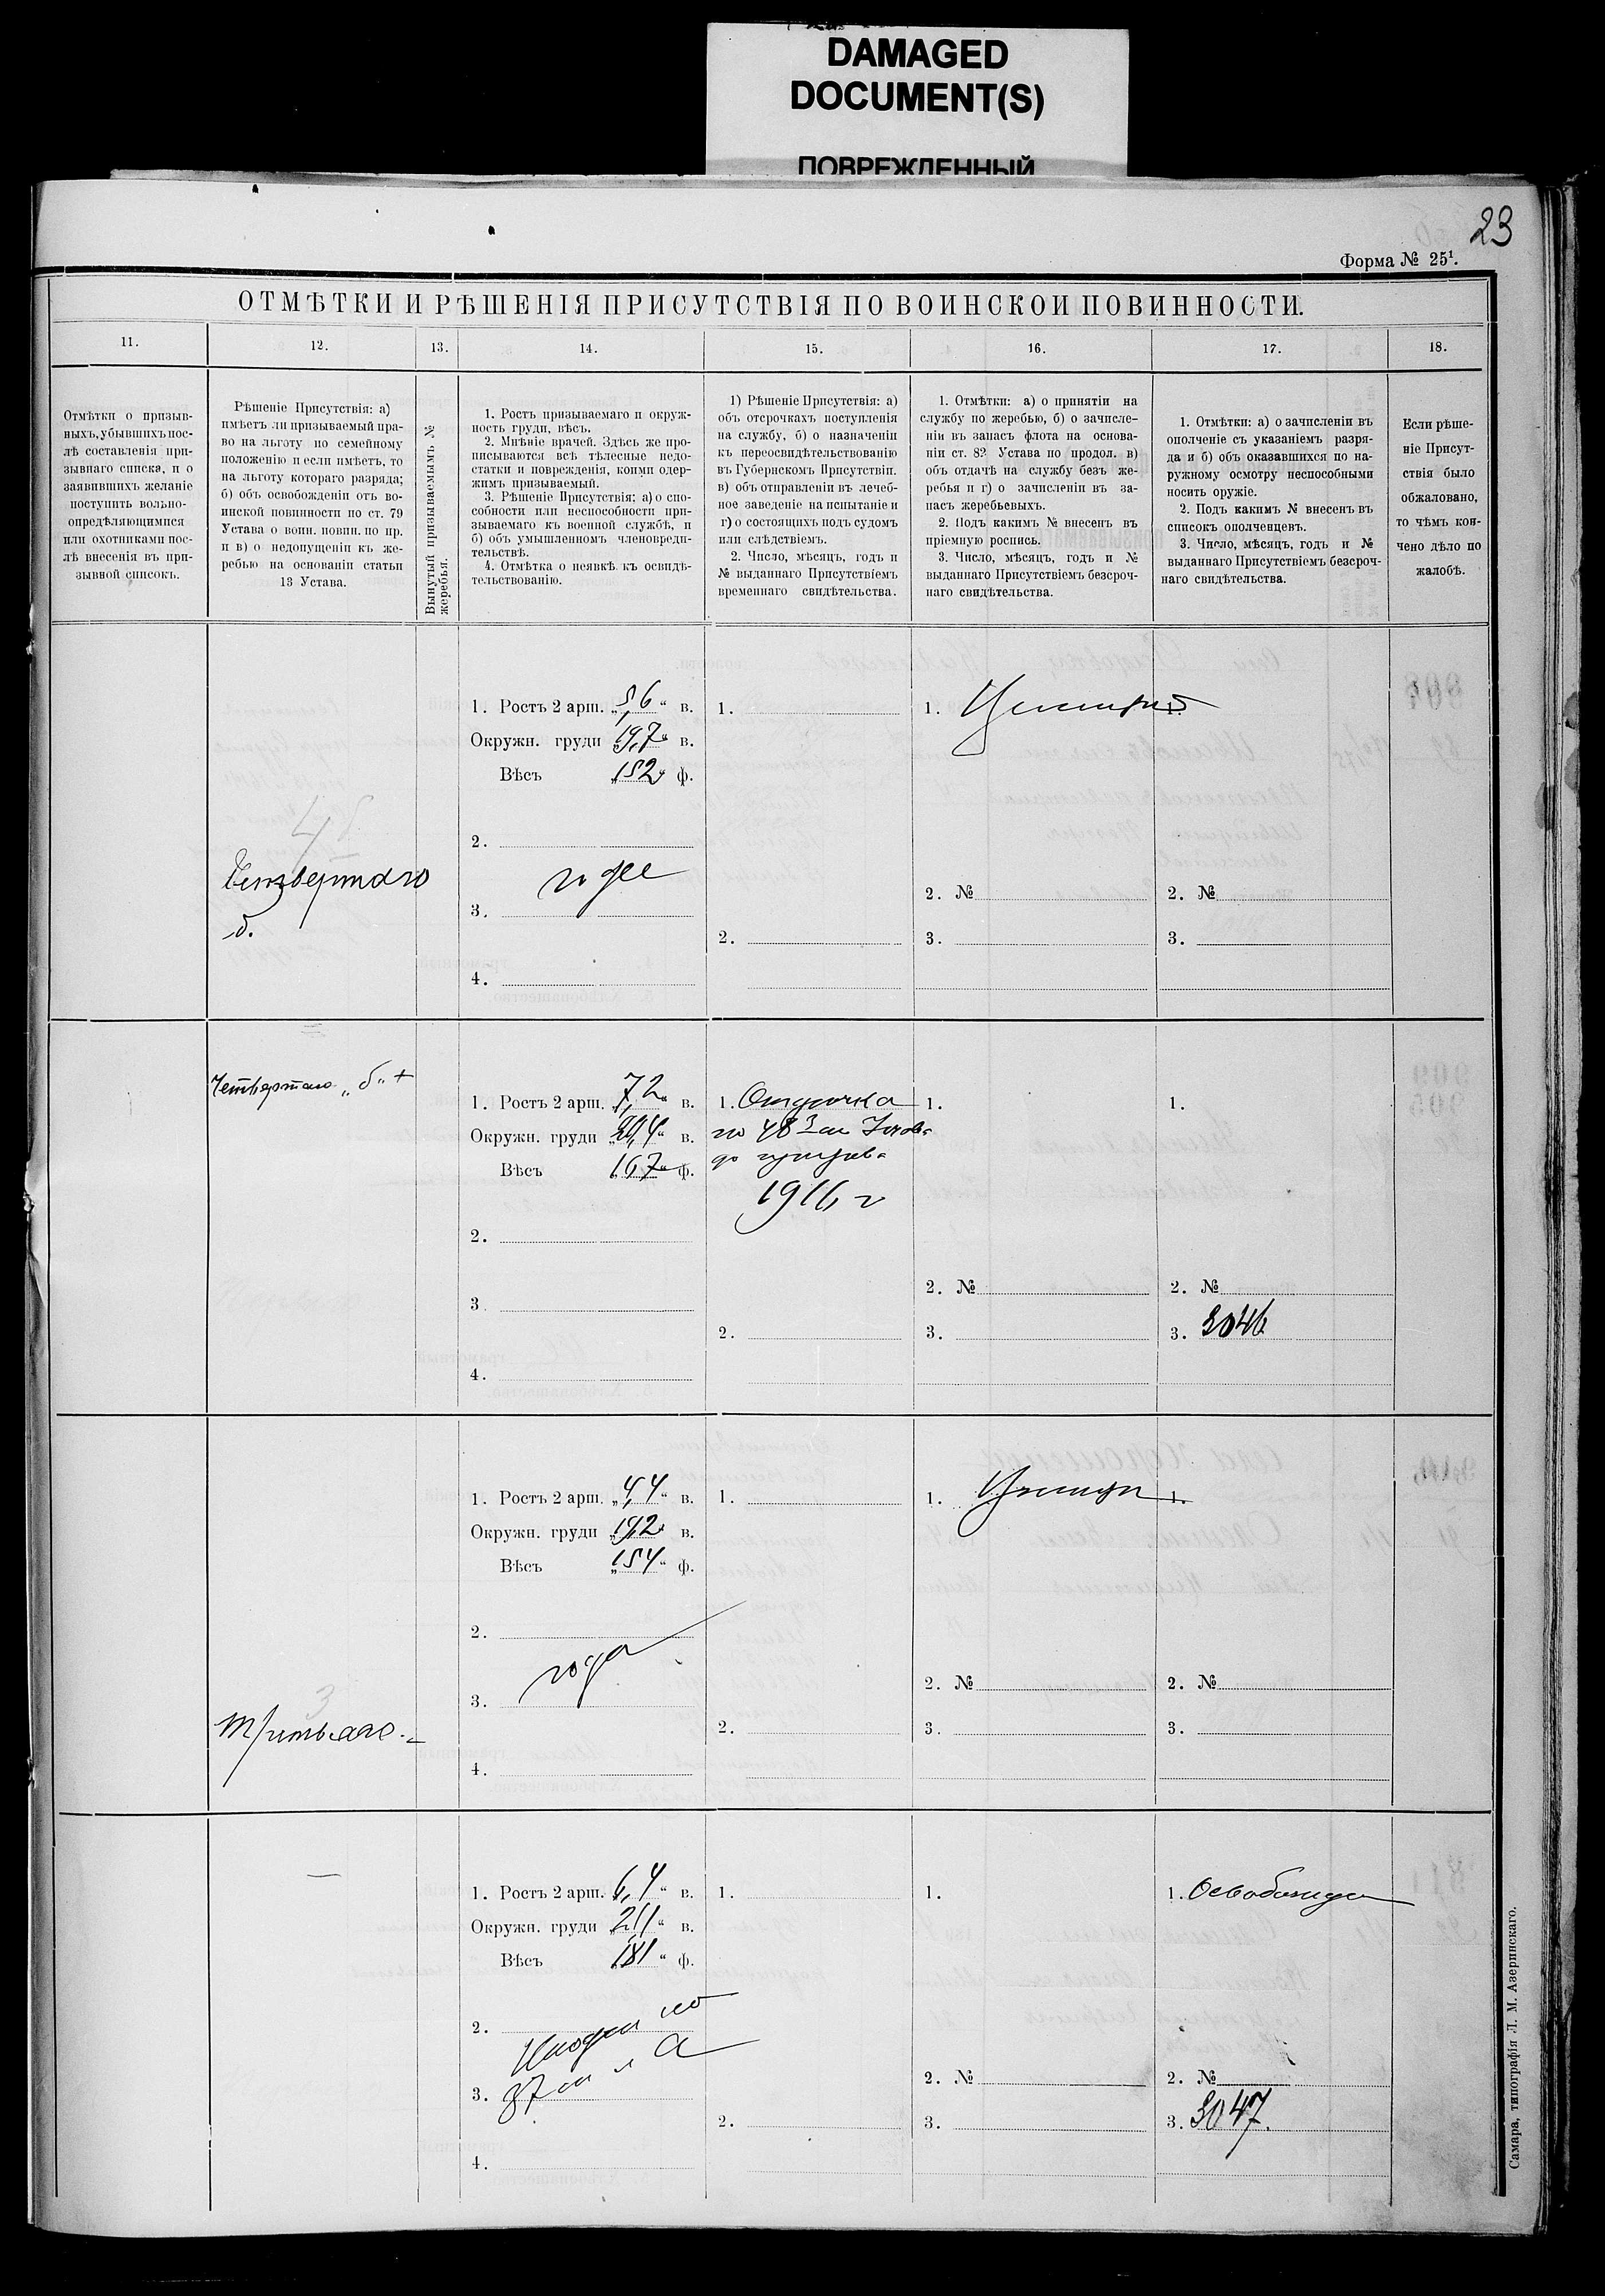 DAMAGED
DOCUMENT(S)
ПОВРЕЖДЕННЫЙ
23
Форма № 25¹.
ОТМѢТКИ И РѢШЕНІЯ ПРИСУТСТВІЯ ПО ВОИНСКОЙ ПОВИННОСТИ.
11.
12.
13.
14.
15.
16.
17.
18.
Отмѣтки о призыв-
ныхъ, убывшихъ пос-
лѣ составленія при-
зывнаго списка, и о
заявившихъ желаніе
поступить вольно-
опредѣляющимися
или охотниками пос-
лѣ внесенія въ при-
зывной списокъ.
Рѣшеніе Присутствія: а)
имѣетъ ли призываемый пра-
во на льготу по семейному
положенію и если имѣетъ, то
на льготу котораго разряда;
б) объ освобожденіи отъ во-
инской повинности по ст. 79
Устава о воин. повин. по пр.
и в) о недопущеніи къ же-
ребью на основаніи статьи
13 Устава.
Вынутый призываемымъ №
жеребья.
1. Ростъ призываемаго и окруж-
ность груди, вѣсъ.
2. Мнѣніе врачей. Здѣсь же про-
писываются всѣ тѣлесные недо-
статки и поврежденія, коими одер-
жимъ призываемый.
3. Рѣшеніе Присутствія: а) о спо-
собности или неспособности при-
зываемаго къ военной службѣ, и
б) объ умышленномъ членовреди-
тельствѣ.
4. Отмѣтка о неявкѣ къ освидѣ-
тельствованію.
1) Рѣшеніе Присутствія: а)
объ отсрочкахъ поступленія
на службу, б) о назначеніи
къ переосвидѣтельствованію
въ Губернскомъ Присутствіи.
в) объ отправленіи въ лечеб-
ное заведеніе на испытаніе и
г) о состоящихъ подъ судомъ
или слѣдствіемъ.
2. Число, мѣсяцъ, годъ и
№ выданнаго Присутствіемъ
временнаго свидѣтельства.
1. Отмѣтки: а) о принятіи на
службу по жеребью, б) о зачисле-
ніи въ запасъ флота на основа-
ніи ст. 82 Устава по продол. в)
объ отдачѣ на службу безъ же-
ребья и г) о зачисленіи въ за-
пасъ жеребьевыхъ.
2. Подъ какимъ № внесенъ въ
пріемную роспись.
3. Число, мѣсяцъ, годъ и №
выданнаго Присутствіемъ безсроч-
наго свидѣтельства.
1. Отмѣтки: а) о зачисленіи въ
ополченіе съ указаніемъ разря-
да и б) объ оказавшихся по на-
ружному осмотру неспособными
носить оружіе.
2. Подъ какимъ № внесенъ въ
списокъ ополченцевъ.
3. Число, мѣсяцъ, годъ и №
выданнаго Присутствіемъ безсроч-
наго свидѣтельства.
Если рѣше-
ніе Присут-
ствія было
обжаловано,
то чѣмъ кон-
чено дѣло по
жалобѣ.
1. Ростъ 2 арш. „5,6“ в.
Окружн. груди „19,7“ в.
Вѣсъ „152“ ф.
1.
1.
1.
Четвертаго
б.
2.
3.
4.
2.
2. №
3.
2. №
3.
Четвертаго „б“ +
1. Ростъ 2 арш. „7,2“ в.
Окружн. груди „20,4“ в.
Вѣсъ „167“ ф.
1. Отсрочка
по 48 3
до
1916 г
1.
1.
2.
3.
4.
2.
2. №
3.
2. №
3. 3046
1. Ростъ 2 арш. „4,4“ в.
Окружн. груди „19,2“ в.
Вѣсъ „154“ ф.
1.
1.
1.
2.
3. годе
4.
3
Третьяго
2.
2. №
3.
2. №
3.
—
1. Ростъ 2 арш. „6,4“ в.
Окружн. груди „21,1“ в.
Вѣсъ „181“ ф.
1.
1.
1. Освобожден
2.
3. 87
4.
2.
2. №
3.
2. №
3. 3047.
Самара, типографія Л. М. Азеринскаго.